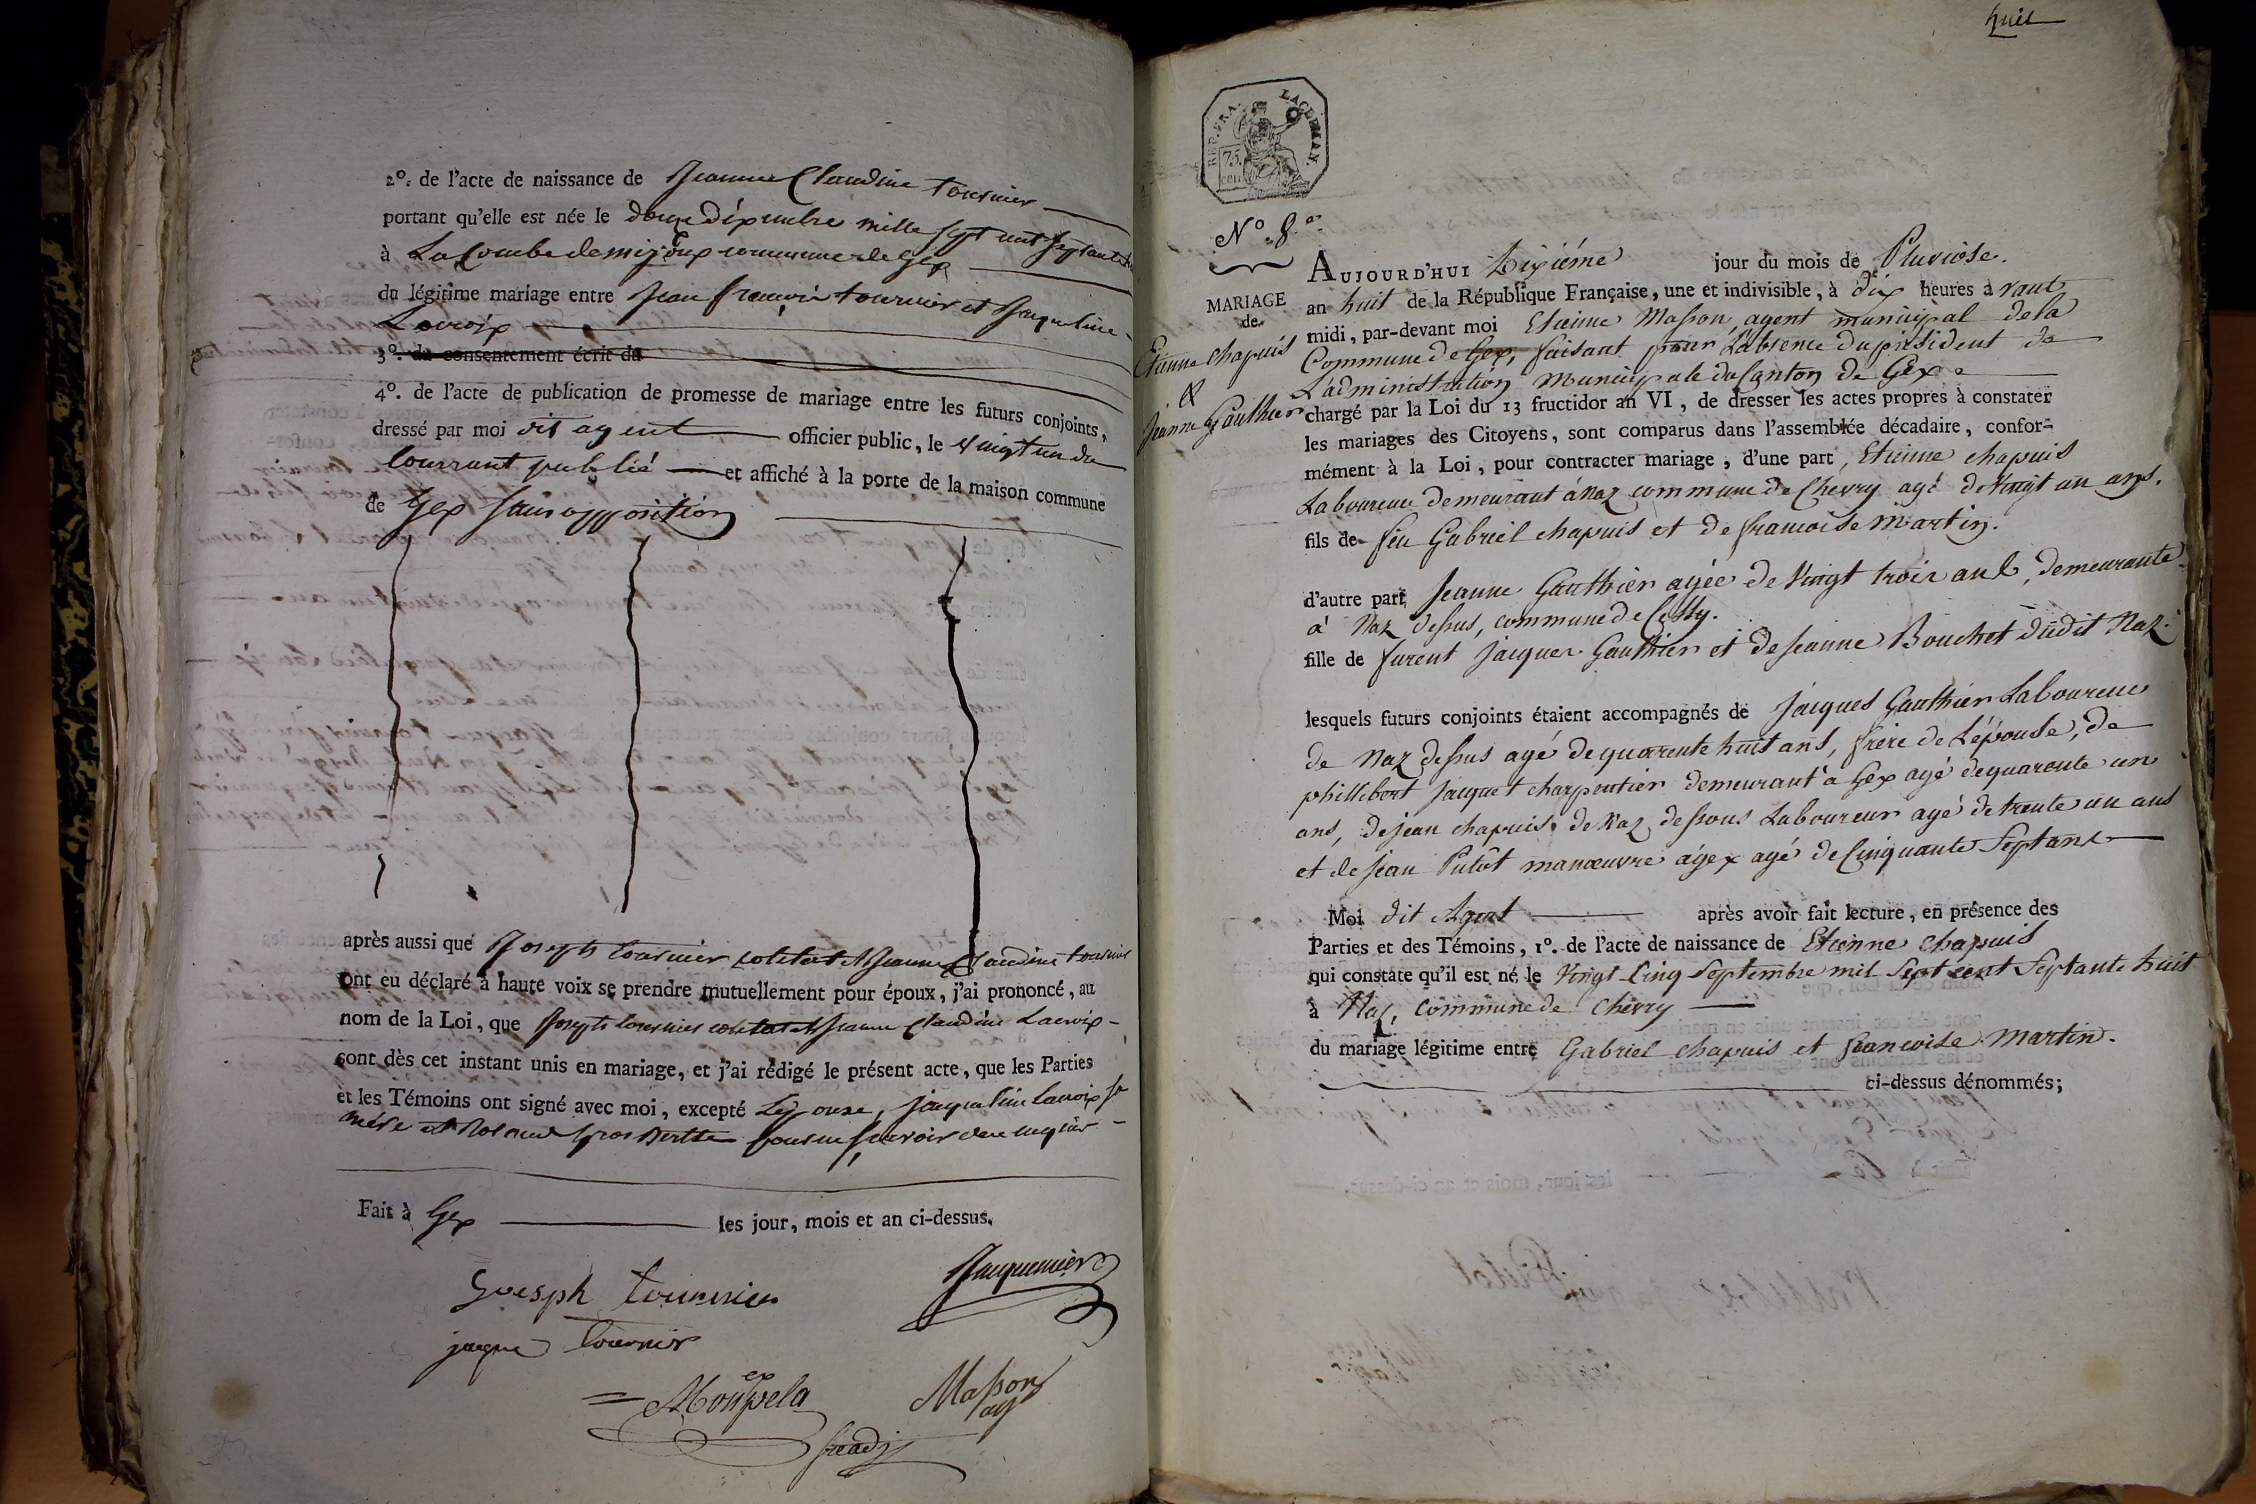 2º. de l'acte de naissance de Jeanne Claudine tournier
portant qu'elle est née le douze décembre mille sept cent septante
à La Combe de mijoux commune de Gex
du légitime mariage entre Jean françois tournier et Jaqueline
Lacroix
3º. du consentement écrit du
4º. de l'acte de publication de promesse de mariage entre les futurs conjoints,
dressé par moi dit agent officier public, le vingt un du
courrant publié et affiché à la porte de la maison commune
de Gex sans opposition
après aussi que Joseph tournier et Jeanne Claudine tournier
ont eu déclaré à haute voix se prendre mutuellement pour époux, j'ai prononcé, au
nom de la Loi, que Joseph tournier et Jeanne Claudine Lacroix
sont dès cet instant unis en mariage, et j'ai rédigé le présent acte, que les Parties
et les Témoins ont signé avec moi, excepté L'épouse, jaqueline Lacroix sa
mère et pour ne savoir de ce enquis
Fait à Gex les jour, mois et an ci-dessus.
Joesph tournier
Jacquemier
jaque tournier
Mouspela
Masson
ag
huit
REP. FRA.
75.
cen
Nº 8.
MARIAGE
de
Etienne chapuis
&
Jeanne Gauthier
AUJOURD'HUI Dixiéme jour du mois de Pluviose.
an huit de la République Française, une et indivisible, à dix heures avant
midi, par-devant moi Etienne Masson, agent municipal de la
Commune de Gex, faisant pour L'absence du président de
L'administration Municipale du Canton de Gex
chargé par la Loi du 13 fructidor an VI, de dresser les actes propres à constater
les mariages des Citoyens, sont comparus dans l'assemblée décadaire, confor-
mément à la Loi, pour contracter mariage, d'une part, Etienne chapuis
Laboureur demeurant á Naz commune de Chevry agé de vingt un ans.
fils de feu Gabriel chapuis et de francoise Martin.
d'autre part Jeanne Gauthier agée de Vingt trois ans, demeurante
a' Naz dessus, commune de Cessy.
fille de furent Jacques Gauthier et de Jeanne Bouchet dudit Naz.
lesquels futurs conjoints étaient accompagnés de Jacques Gauthier Laboureur
de Naz dessus agé de quarente huit ans, frére de L'épouse, de
phillibert Jacquet charpentier demeurant a Gex agé de quarente un
ans, de jean chapuis de Naz dessous Laboureur agé de trente un ans
et de Jean Putôt manœuvre á gex agé de Cinquante Sept ans
Moi dit Agent après avoir fait lecture, en présence des
Parties et des Témoins, 1º. de l'acte de naissance de Etienne chapuis
qui constate qu'il est né le Vingt Cinq Septembre mil Sept cent Septante huit
à Naz, Commune de Chevry
du mariage légitime entre Gabriel chapuis et francoise Martin.
ci-dessus dénommés;